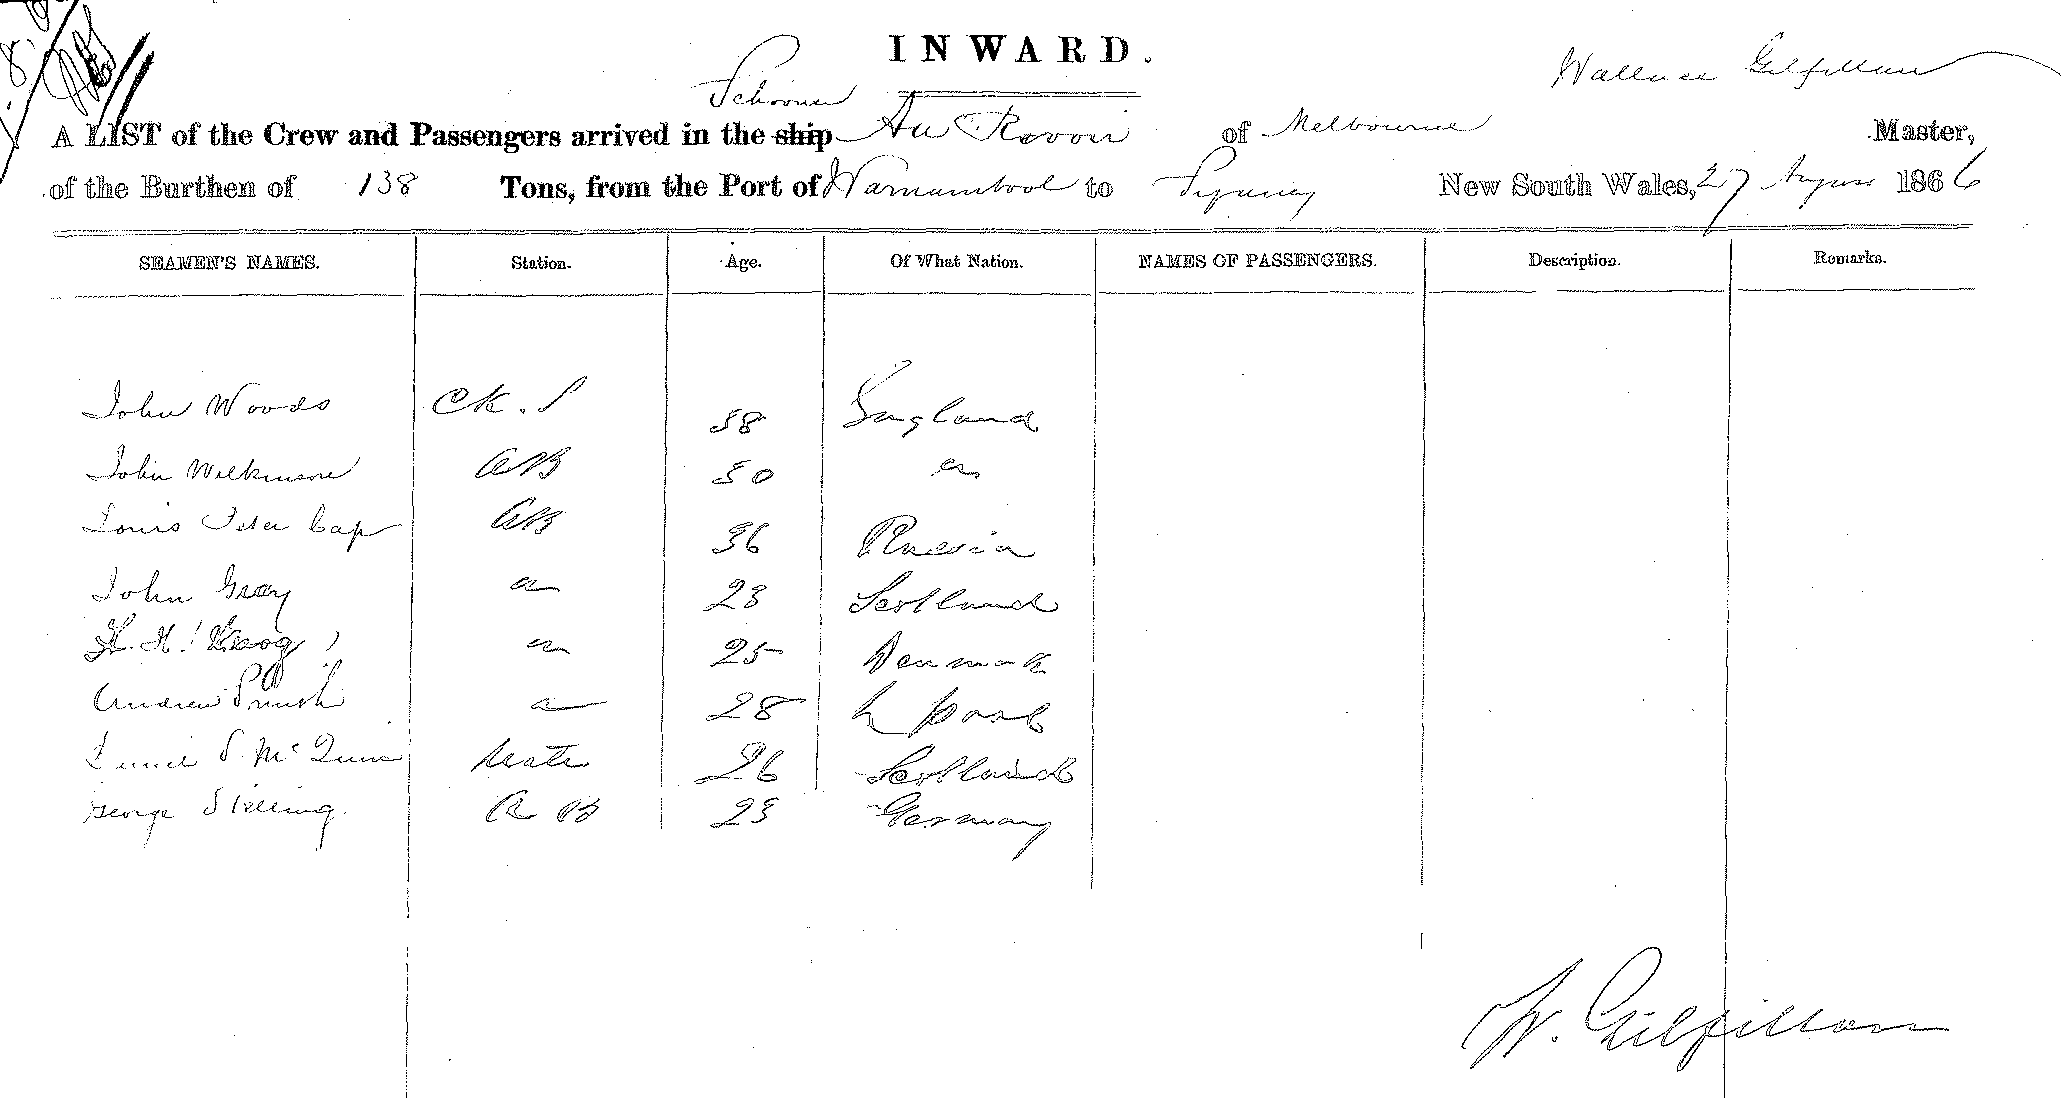 INWARD.
Schooner Wallace Gilfillan
A LIST of the Crew and Passengers arrived in the ship Au Revoir of Melbourne Master,
of the Burthen of 138 Tons, from the Port of Warnambool to Sydney New South Wales, 27 August 1866
SEAMEN'S NAMES. Station. Age. Of What Nation. NAMES OF PASSENGERS. Description. Remarks.
John Woods Ck. S 38 England
John Wilkinson AB 30 "
Louis Peter Cap AB 36 Russia
John Gray " 23 Scotland
H. Krog " 25 Denmark
Andrew " 28 L pool
McQuin Mate 26 Scotland
George Stelling. A B 23 Germany
W. Gilfillan